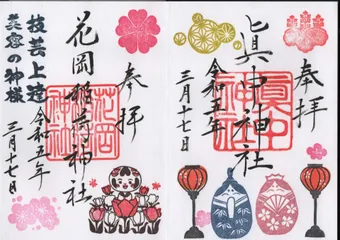 奉拝
眞中神社
眞中
神社
令和五年
三月十七日
奉拝
花岡稲荷神社
花岡
神社
技芸上達
美容の神様
令和五年
三月十七日